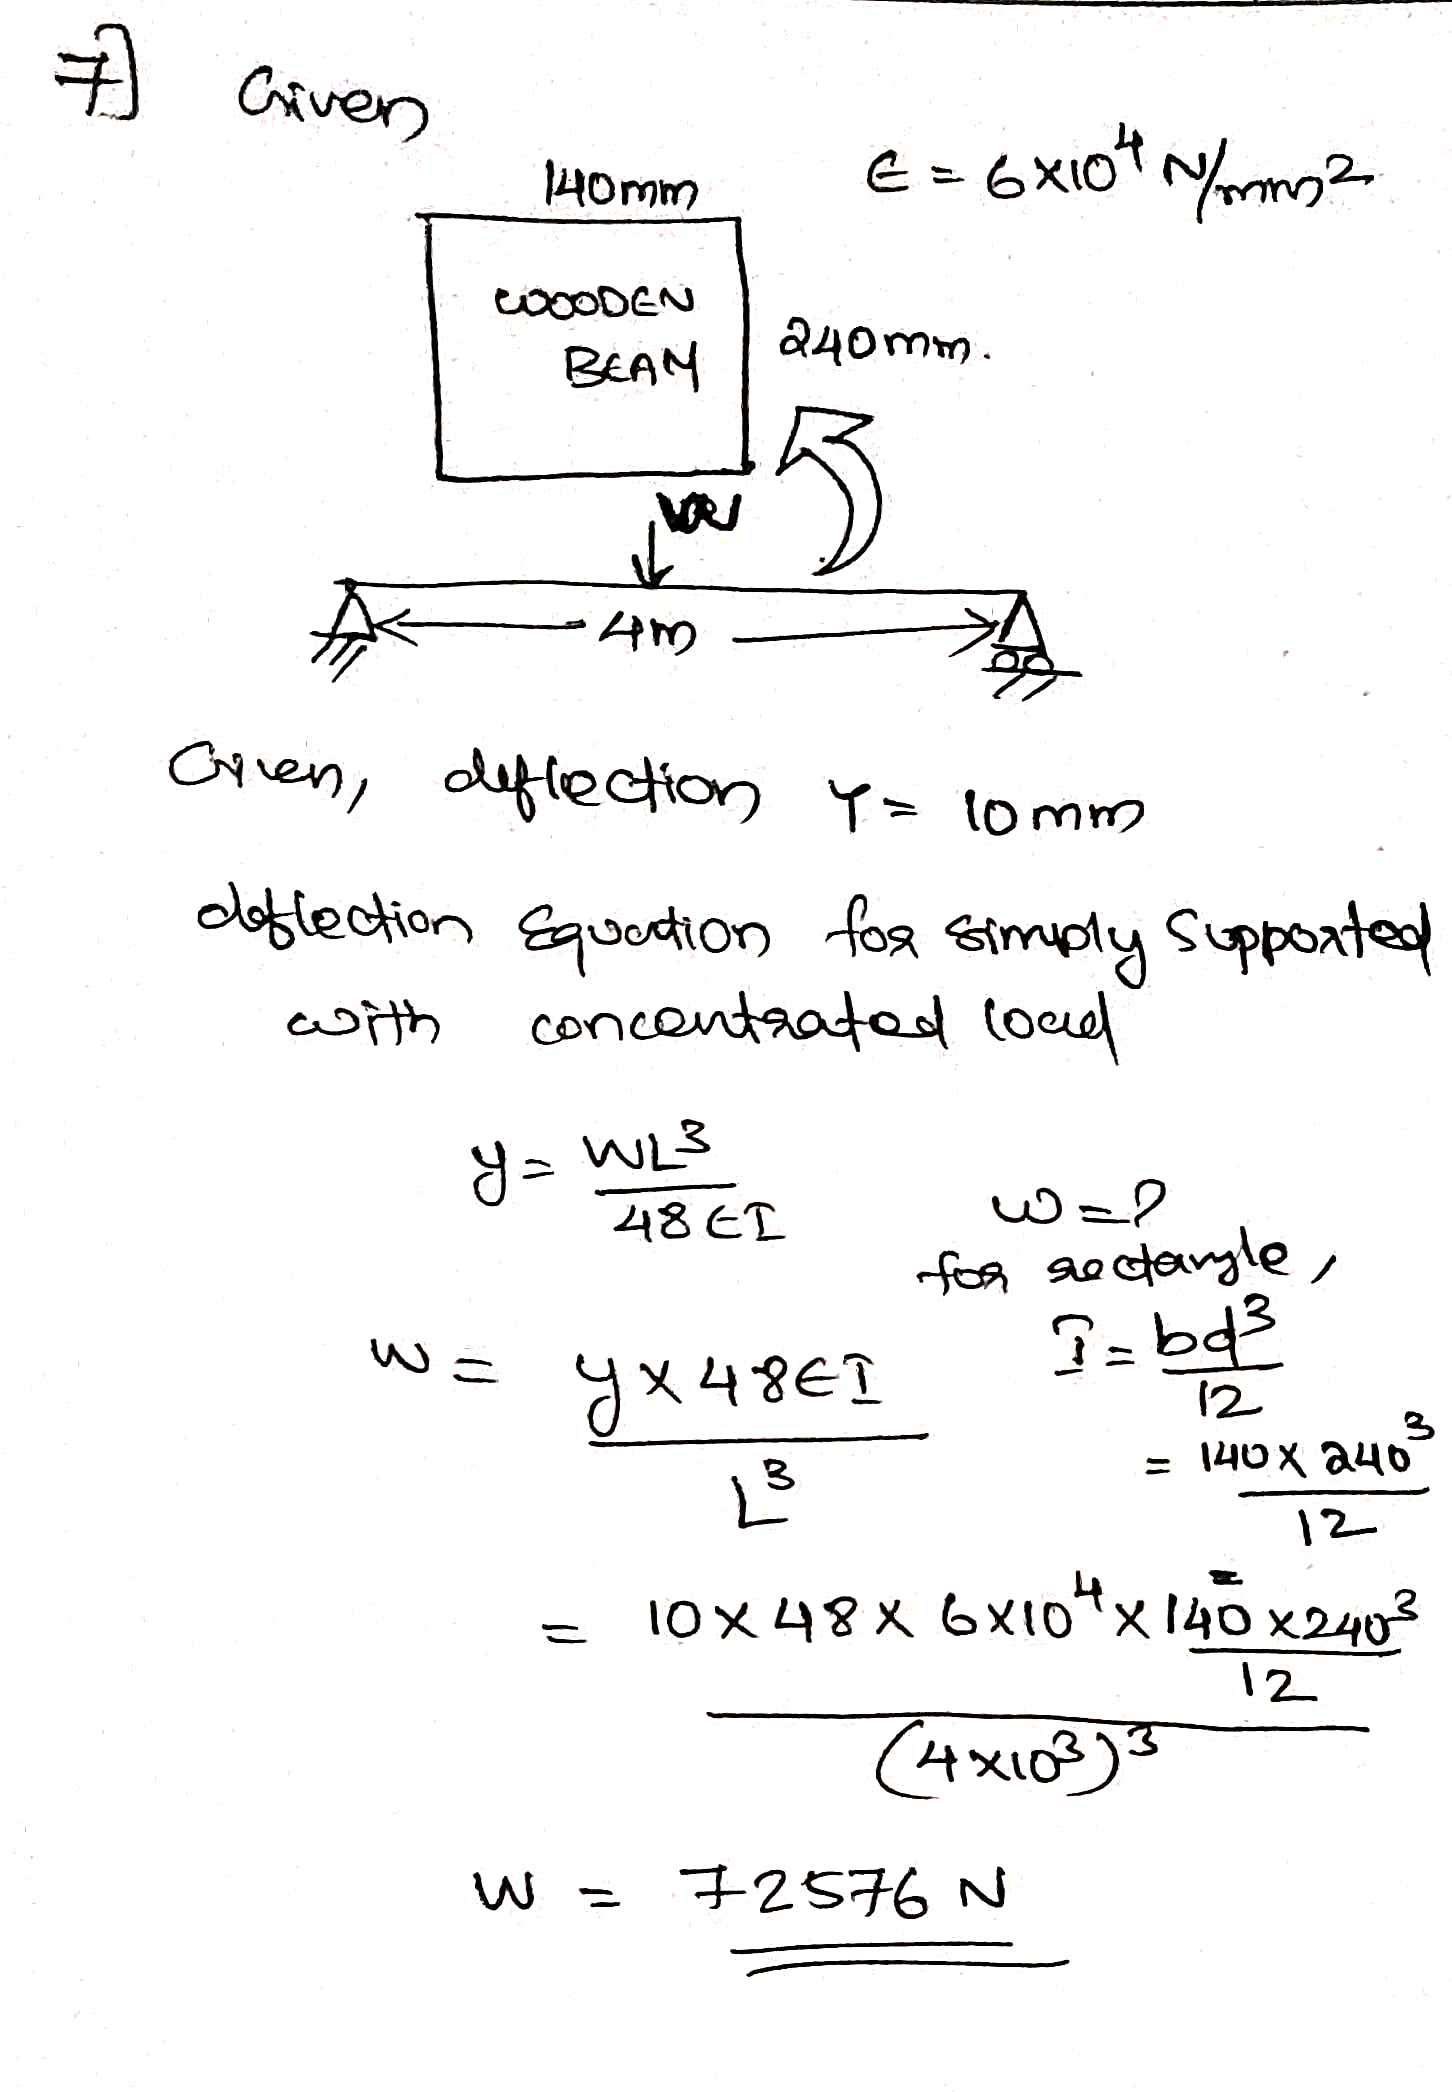 7] Given
E = 6×10⁴ N/mm²
140mm
WOOODEN
BEAM
240mm.
W
4m
Given, deflection Y = 10mm
deflection Equation for simply supported
with concentrated load
y = WL³/48EI
W = ?
for rectangle,
W = y×48EI/L³
I = bd³/12
= 140×240³/12
= 10×48×6×10⁴×140×240³/12/(4×10³)³
W = 72576 N